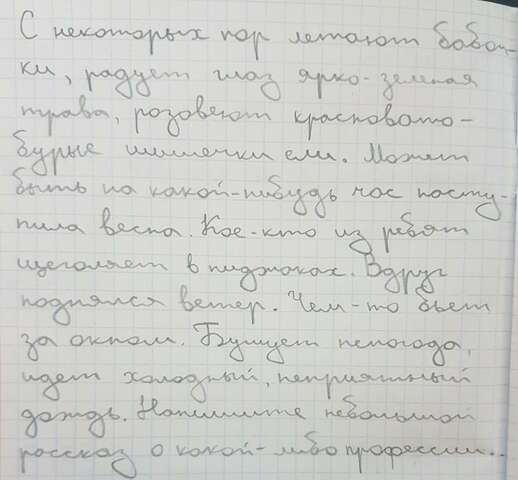 С некоторых пор летают бабоч-
ки, радует глаз ярко-зеленая
трава, розовеют красновато-
бурые шишечки ели. Может
быть на какой-нибудь час насту-
пила весна. Кое-кто из ребят
щеголяет в пиджаках. Вдруг
поднялся ветер. Чем-то бьет
за окном. Бушует непогода,
идет холодный, неприятный
дождь. Напишите небольшой
рассказ о какой-либо профессии..